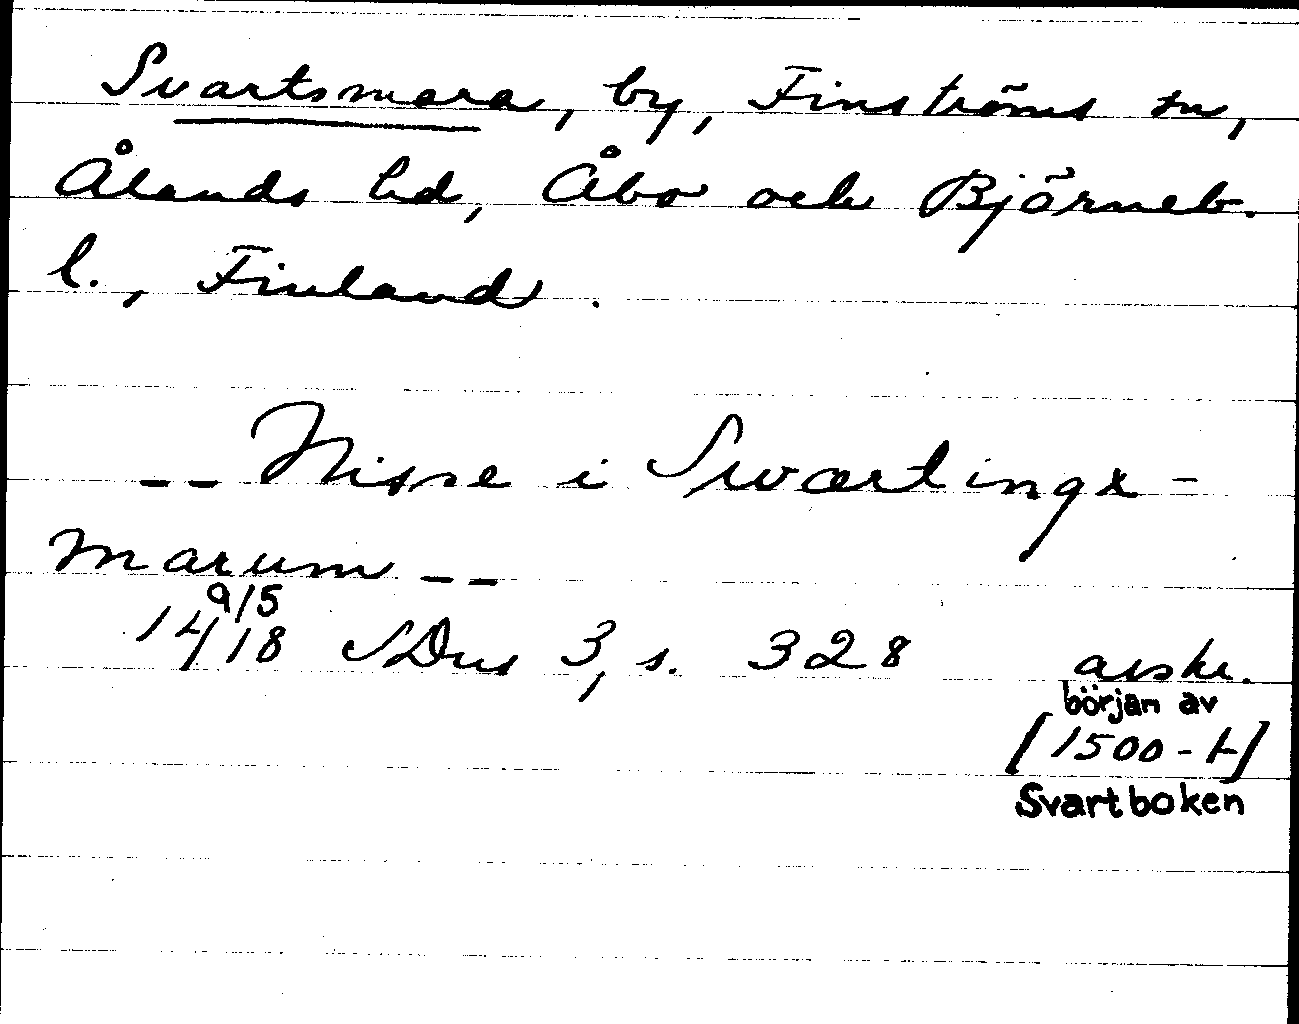 Svartsmara, by, Finströms sn,
Ålands hd, Åbo och Björneb.
l., Finland.
-- Nisse i Swærtingx-
marum --
1418 9/5 SDns 3, s. 328 avskr.
början av
[1500-t]
Svartboken